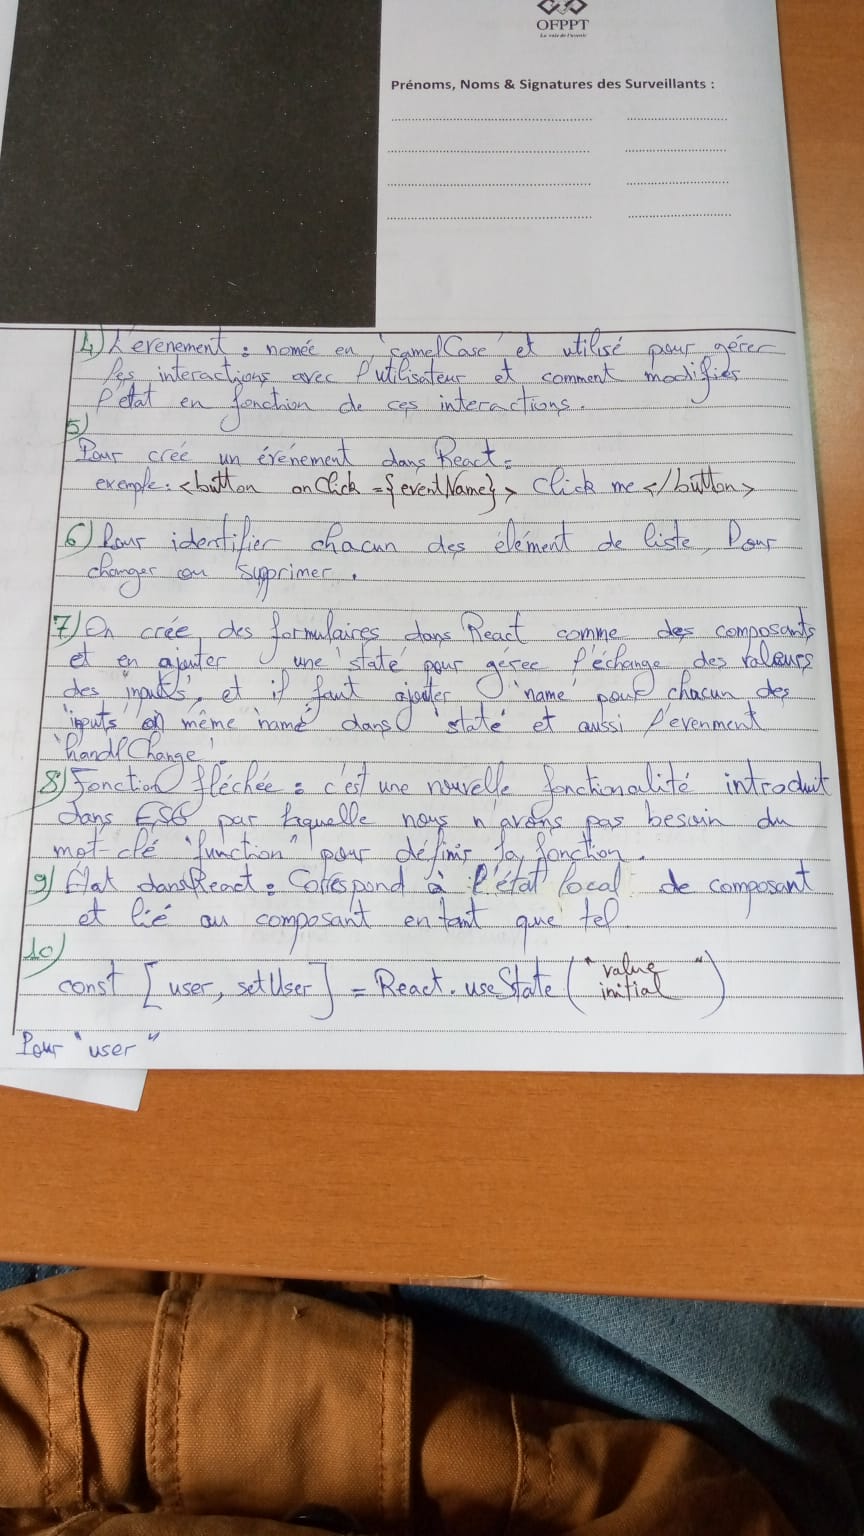 OFPPT
La voie de l'avenir
Prénoms, Noms & Signatures des Surveillants :
4) L'evenement : nomée en 'camelCase' et utilisé pour gérer
les interactions avec l'utilisateur et comment modifies
l'etat en fonction de ces interactions.
5)
Pour creé un événement dans React :
exemple : <button onClick = {eventName}> Click me </button>
6) Pour identifier chacun des élément de liste, Pour
changer ou supprimer.
7) On crée des formulaires dans React comme des composants
et en ajouter une 'state' pour géree l'échange des valeurs
des 'inputs', et il faut ajouter 'name' pour chacun des
'inputs' même 'name' dans 'state' et aussi l'evenment
'handlChange'.
8) Fonction fléchée : c'est une nouvelle fonctionalité introduit
dans ES6 par laquelle nous n'avons pas besoin du
mot-clé "function" pour définir la fonction.
9) Etat dans React : Correspond à l'état local de composant
et lié au composant en tant que tel.
10)
const [user, setUser] = React.useState("value
initial")
Pour "user"